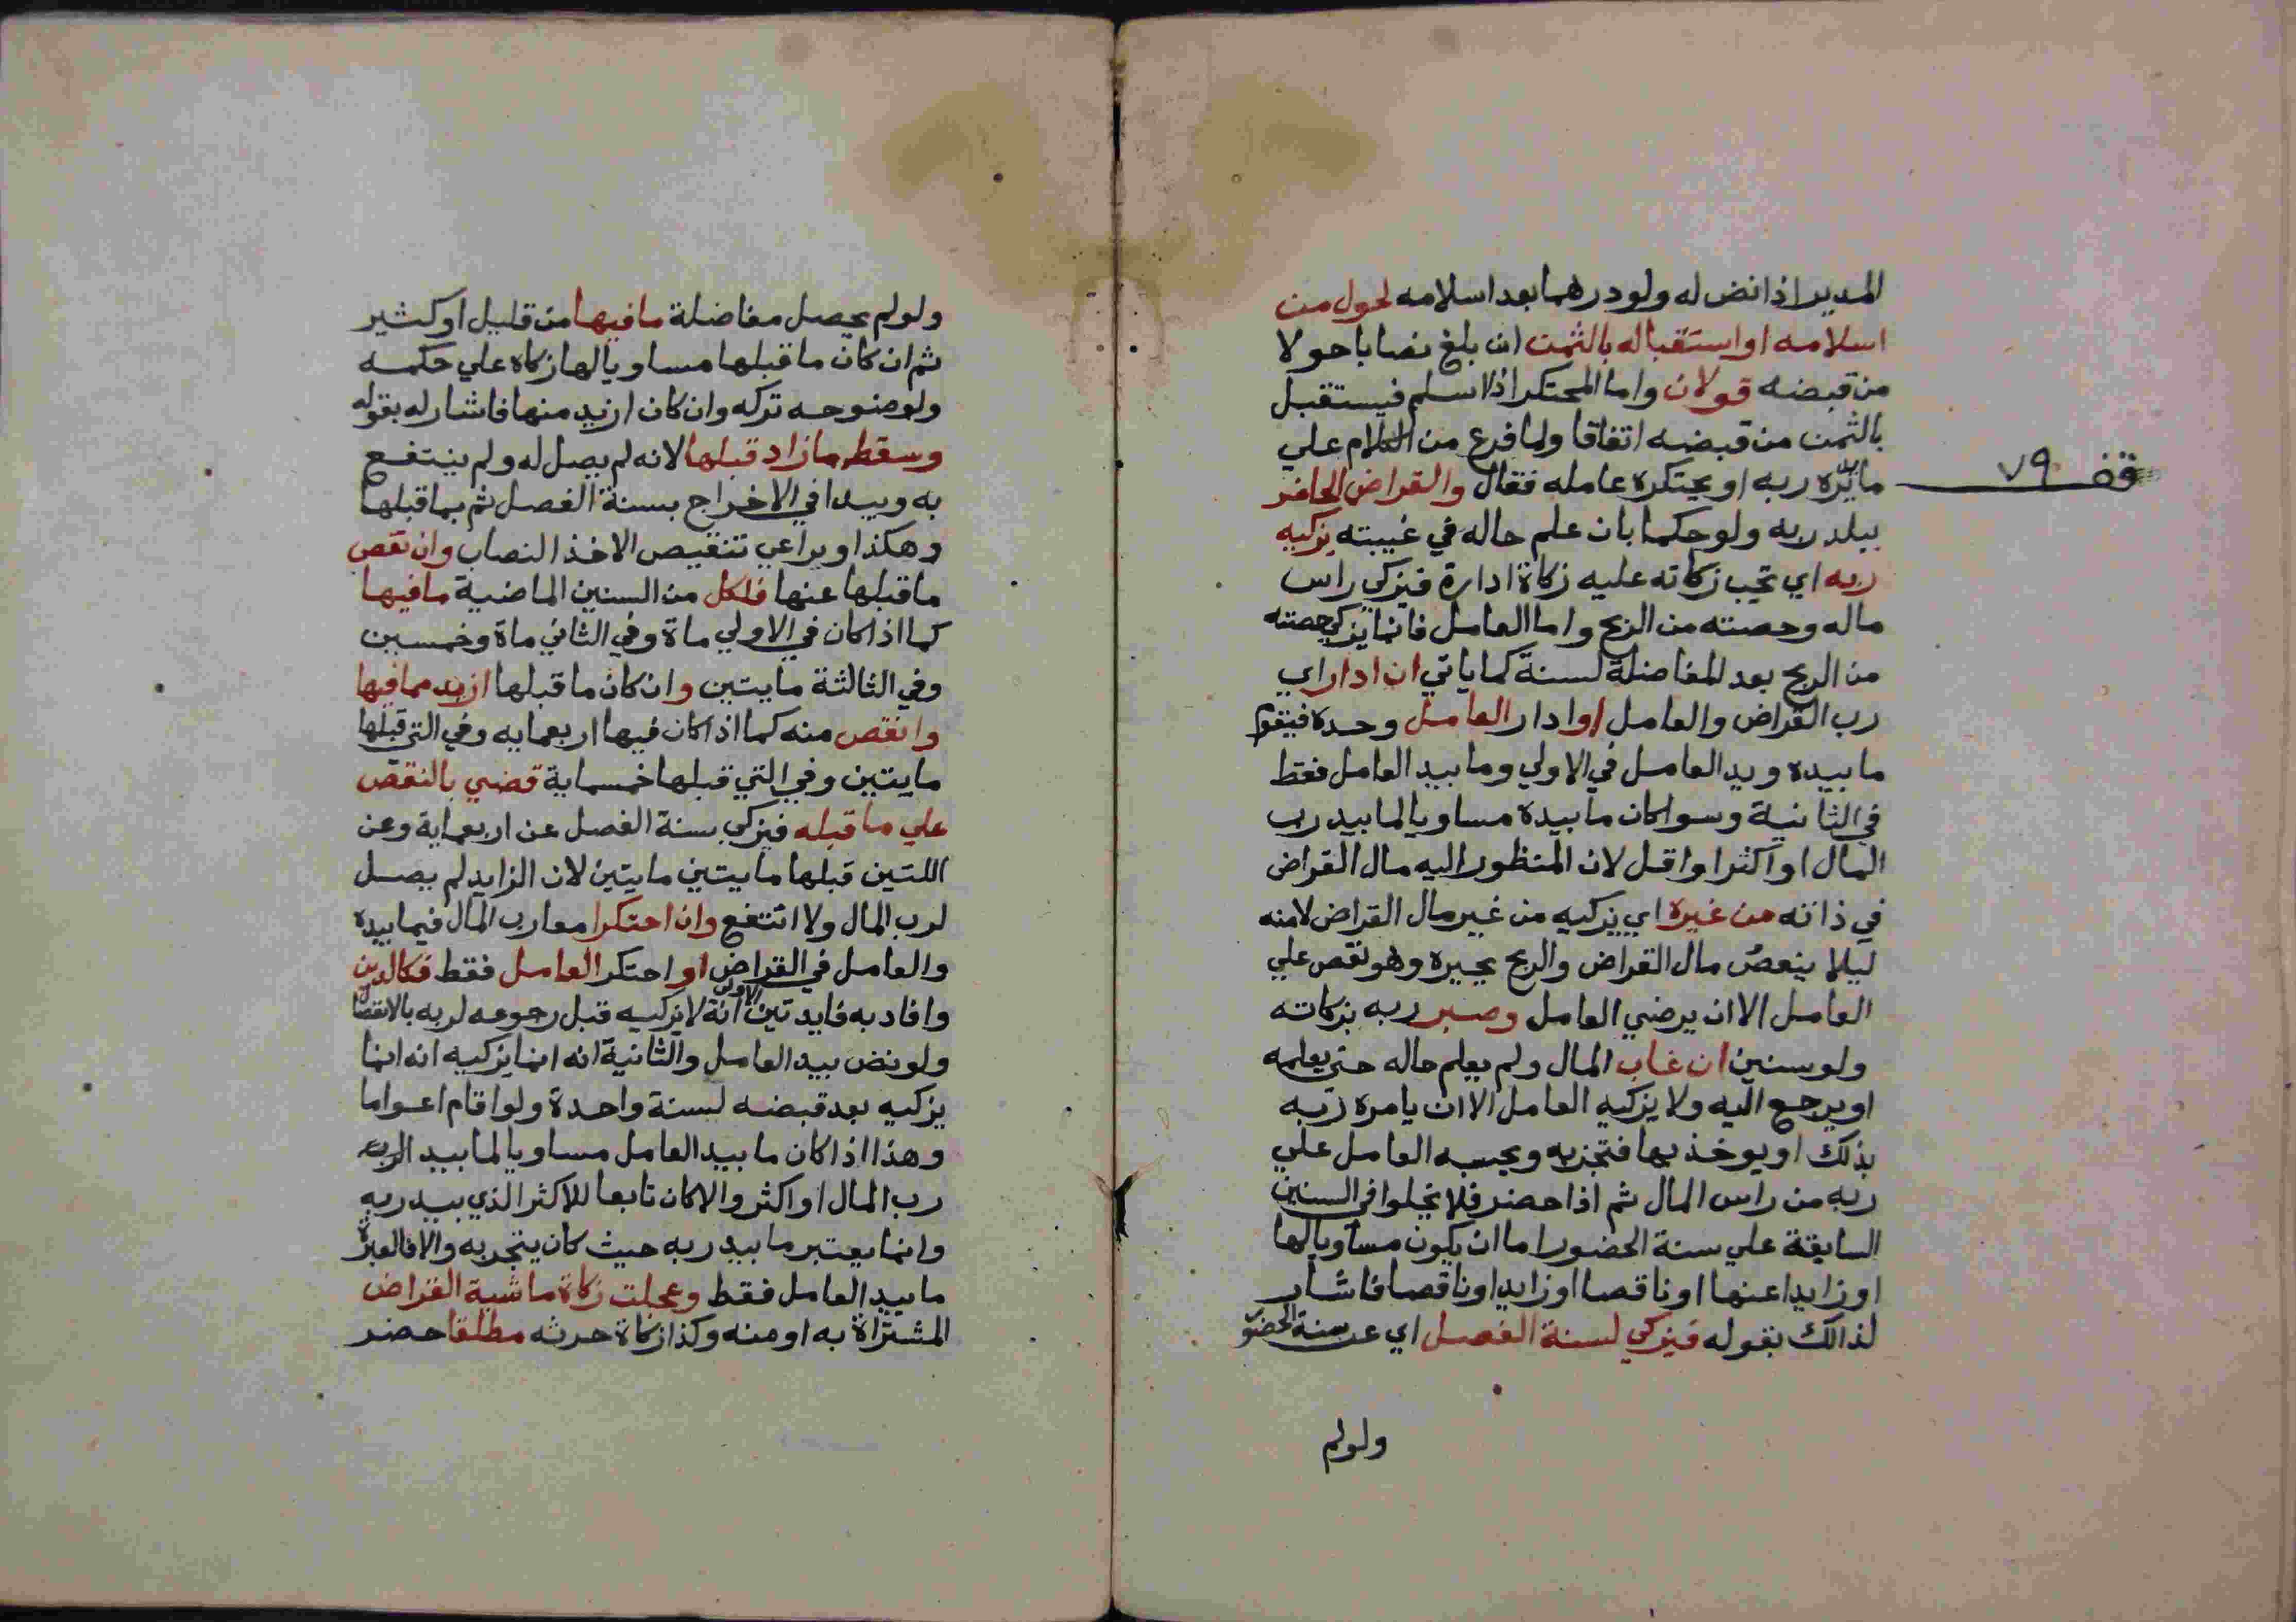 المدير اذا نض له ولو درهما بعد اسلامه لحول من
اسلامه او استقباله بالثمن ان بلغ نصابا حولا
من قبضه قولان واما المحتكر اذا اسلم فيستقبل
بالثمن من قبضه اتفاقا ولما فرغ من الكلام علي
ما يديره ربه او يحتكره عامله فقال والقراض الحاضر
وقف ٧٩
ببلد ربه ولو حكما بان علم حاله في غيبته يزكيه
ربه اي تجب زكاته عليه زكاة ادارة فيزكي راس
ماله وحصته من الربح واما العامل فانما يزكي حصته
من الربح بعد المفاضلة لسنة كما ياتي ان ادار اي
رب القراض والعامل او ادار العامل وحده فيقوم
ما بيده ويد العامل في الاولي وما بيد العامل فقط
في الثانية وسوا كان ما بيده مساويا لما بيد رب
المال او اكثر او اقل لان المنظور اليه مال القراض
في ذاته من غيره اي يزكيه من غير مال القراض لا منه
ليلا ينقص مال القراض والربح يجبره وهو نقص علي
العامل الا ان يرضي العامل وصبر ربه بزكاته
ولو سنين ان غاب المال ولم يعلم حاله حتي يعلمه
او يرجع اليه ولا يزكيه العامل الا ان يامره ربه
بذلك او يوخذ بها فتجزيه ويحسبه العامل علي
ربه من راس المال ثم اذا حضر فلا تخلوا في السنين
السابقة علي سنة الحضور اما ان يكون مساويا لها
او زايدا عنها او ناقصا او زايدا وناقصا فاشار
لذالك بقوله فيزكي لسنة الفصل اي عن سنة الحضور
ولولم
ولو لم يحصل مفاضلة ما فيها من قليل او كثير
ثم ان كان ما قبلها مساويا لها زكاه علي حكمه
ولوضوحه تركه وان كان ازيد منها فاشار له بقوله
وسقط ما زاد قبلها لانه لم يصل له ولم ينتفع
به ويبدا في الاخراج بسنة الفصل ثم بما قبلها
وهكذا ويراعي تنقيص الاخذ النصاب وان نقص
ما قبلها عنها فلكل من السنين الماضية ما فيها
كما اذا كان في الاولي ماة وفي الثاني ماة وخمسين
وفي الثالثة مايتين وان كان ما قبلها ازيد مما فيها
وانقص منه كما اذا كان فيها اربعمايه وفي التي قبلها
مايتين وفي التي قبلها خمسماية قضي بالنقص
علي ما قبله فيزكي سنة الفصل عن اربعماية وعن
اللتين قبلها مايتين مايتين لان الزايد لم يصل
لرب المال ولا انتفع وان احتكرا معا رب المال فيما بيده
والعامل في القراض او احتكر العامل فقط فكالدين
وافاد به فايدتين الاولي انه لا يزكيه قبل رجوعه لربه بالانفصال
ولو نض بيد العامل والثانية انه انما يزكيه انه انما
يزكيه بعد قبضه لسنة واحدة ولو اقام اعواما
وهذا اذا كان ما بيد العامل مساويا لما بيد الربه
رب المال او اكثر والا كان تابعا للاكثر الذي بيد ربه
وانما يعتبر ما بيد ربه حيث كان يتجر به والا فالعبرة
ما بيد العامل فقط وعجلت زكاة ماشية القراض
المشتراة به او منه وكذا زكاة حرثه مطلقا حضر